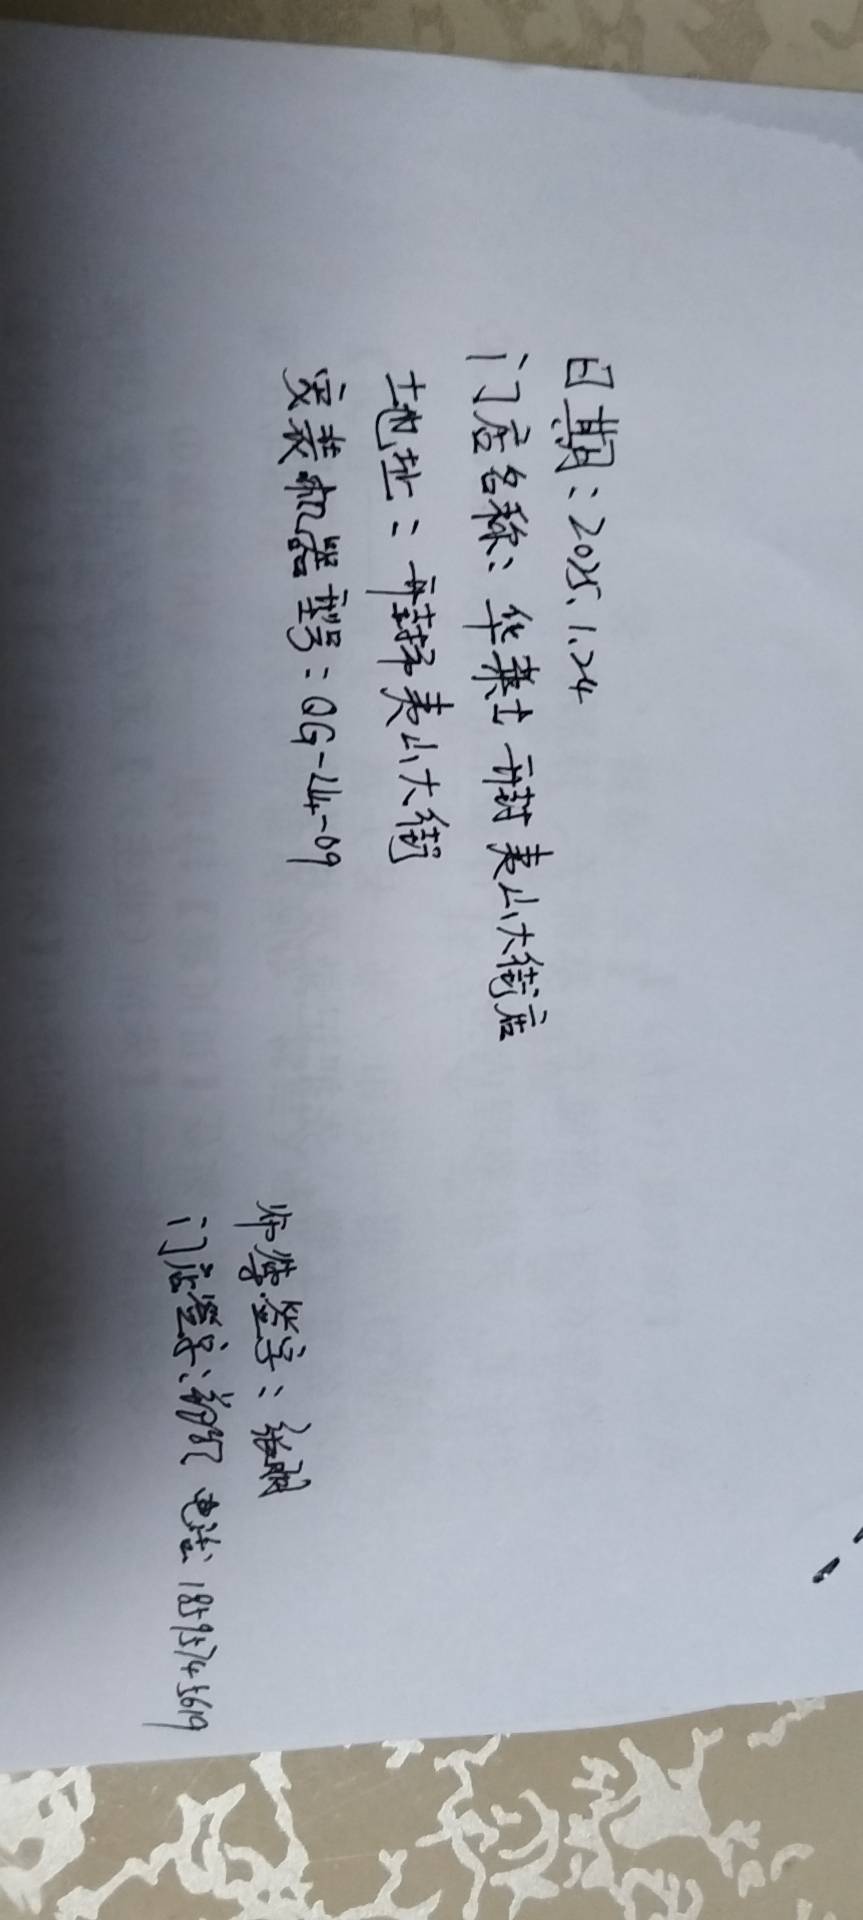 日期：2025.1.24
门店名称：华莱士开封夷山大街店
地址：开封市夷山大街
安装机器型号：QG-L4-09
师傅签字：张朋
门店签字： 电话：18595745619